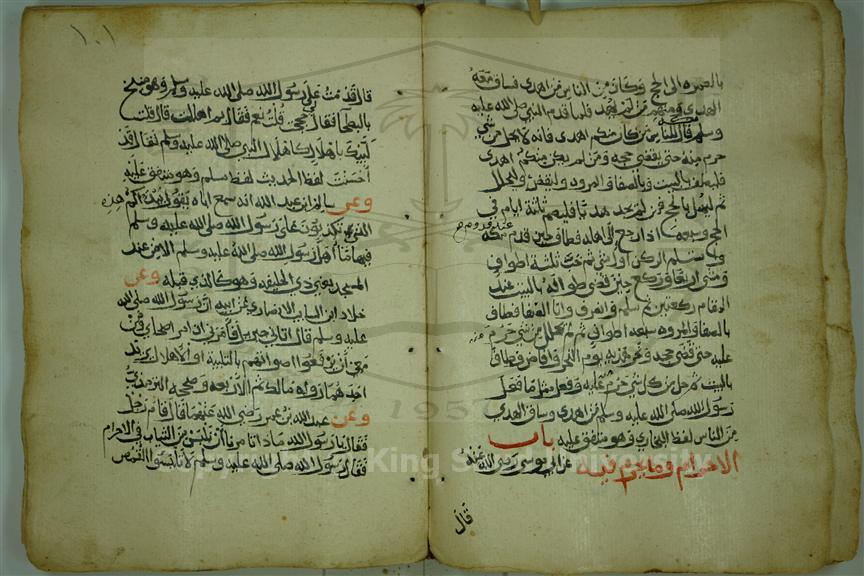 بالعمرة الى الحج وكان من الناس من اهدى فساق معه
الهدي ومنهم من لم يهد فلما قدم النبي صلى الله عليه
وسلم مكة قال للناس من كان منكم اهدى فانه لا يحل من شي
حرم منه حتى يقضي حجه ومن لم يكن منكم اهدى
فليطف بالبيت وبالصفا والمروة وليقصر وليحلل
ثم ليهل بالحج فمن لم يجد هديا فليصم ثلثة ايام في
الحج وسبعة اذا رجع الى اهله فطاف حين قدم مكة
واستلم الركن اول شي ثم خب ثلثة اطواف
ومشى اربعا فركع حين قضى طوافه بالبيت عند
المقام ركعتين ثم سلم فانصرف فاتا الصفا فطاف
بالصفا والمروة سبعة اطواف ثم لم يحلل من شي حرم منه
عليه حتى قضى حجه ونحر هديه يوم النحر وافاض فطاف
بالبيت ثم حل من كل شي حرم عليه وفعل مثل ما فعل
رسول الله صلى الله عليه وسلم من اهدى وساق الهدي
من الناس لفظ البخاري وهو متفق عليه باب
الاحرام وما يحرم فيه عن ابي موسى رضي الله عنه
قال
١٠١
قال قدمت على رسول الله صلى الله عليه وسلم وهو منيخ
بالبطحا فقال لي حججت قلت نعم فقال بم اهللت قال قلت
لبيك باهلال كاهلال النبي صلى الله عليه وسلم فقال قد
احسنت لفظ الحديث لفظ مسلم وهو متفق عليه
وعن سالم بن عبد الله انه سمع اباه يقول بيداكم هذه
التي تكذبون على رسول الله صلى الله عليه وسلم
فيها ما اهل رسول الله صلى الله عليه وسلم الا من عند
المسجد يعني ذي الحليفة وهو كالذي قبله وعن
خلاد ابن السايب الانصاري عن ابيه ان رسول الله صلى الله
عليه وسلم قال اتاني جبريل فامرني ان امر اصحابي ومن
معي ان يرفعوا اصواتهم بالتلبية او الاهلال يريد
احدهما رواه مالك ثم الاربعة وصححه الترمذي
وعن عبد الله بن عمر رضي الله عنهما قال قام رجل
فقال يا رسول الله ماذا تامرنا ان نلبس من الثياب في الاحرام
فقال رسول الله صلى الله عليه وسلم لا تلبسوا القمص
King Saud University
1957